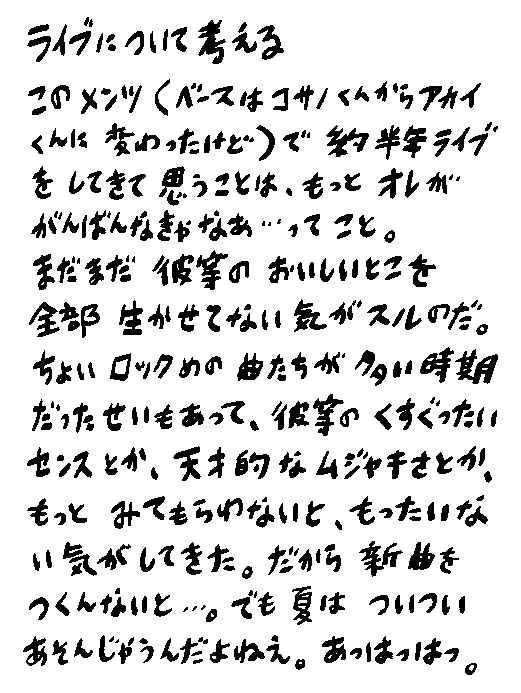 ライブについて考える
このメンツ(ベースはコサノくんからアカイ
くんに変わったけど)で約半年ライブ
をしてきて思うことは、もっとオレが
がんばんなきゃなあ…ってこと。
まだまだ彼等のおいしいとこを
全部生かせてない気がスルのだ。
ちょいロックめの曲たちが多い時期
だったせいもあって、彼等のくすぐったい
センスとか、天才的なムジャキさとか、
もっとみてもらわないと、もったいな
い気がしてきた。だから新曲を
つくんないと…。でも夏はついつい
あそんじゃうんだよねえ。あっはっはっ。